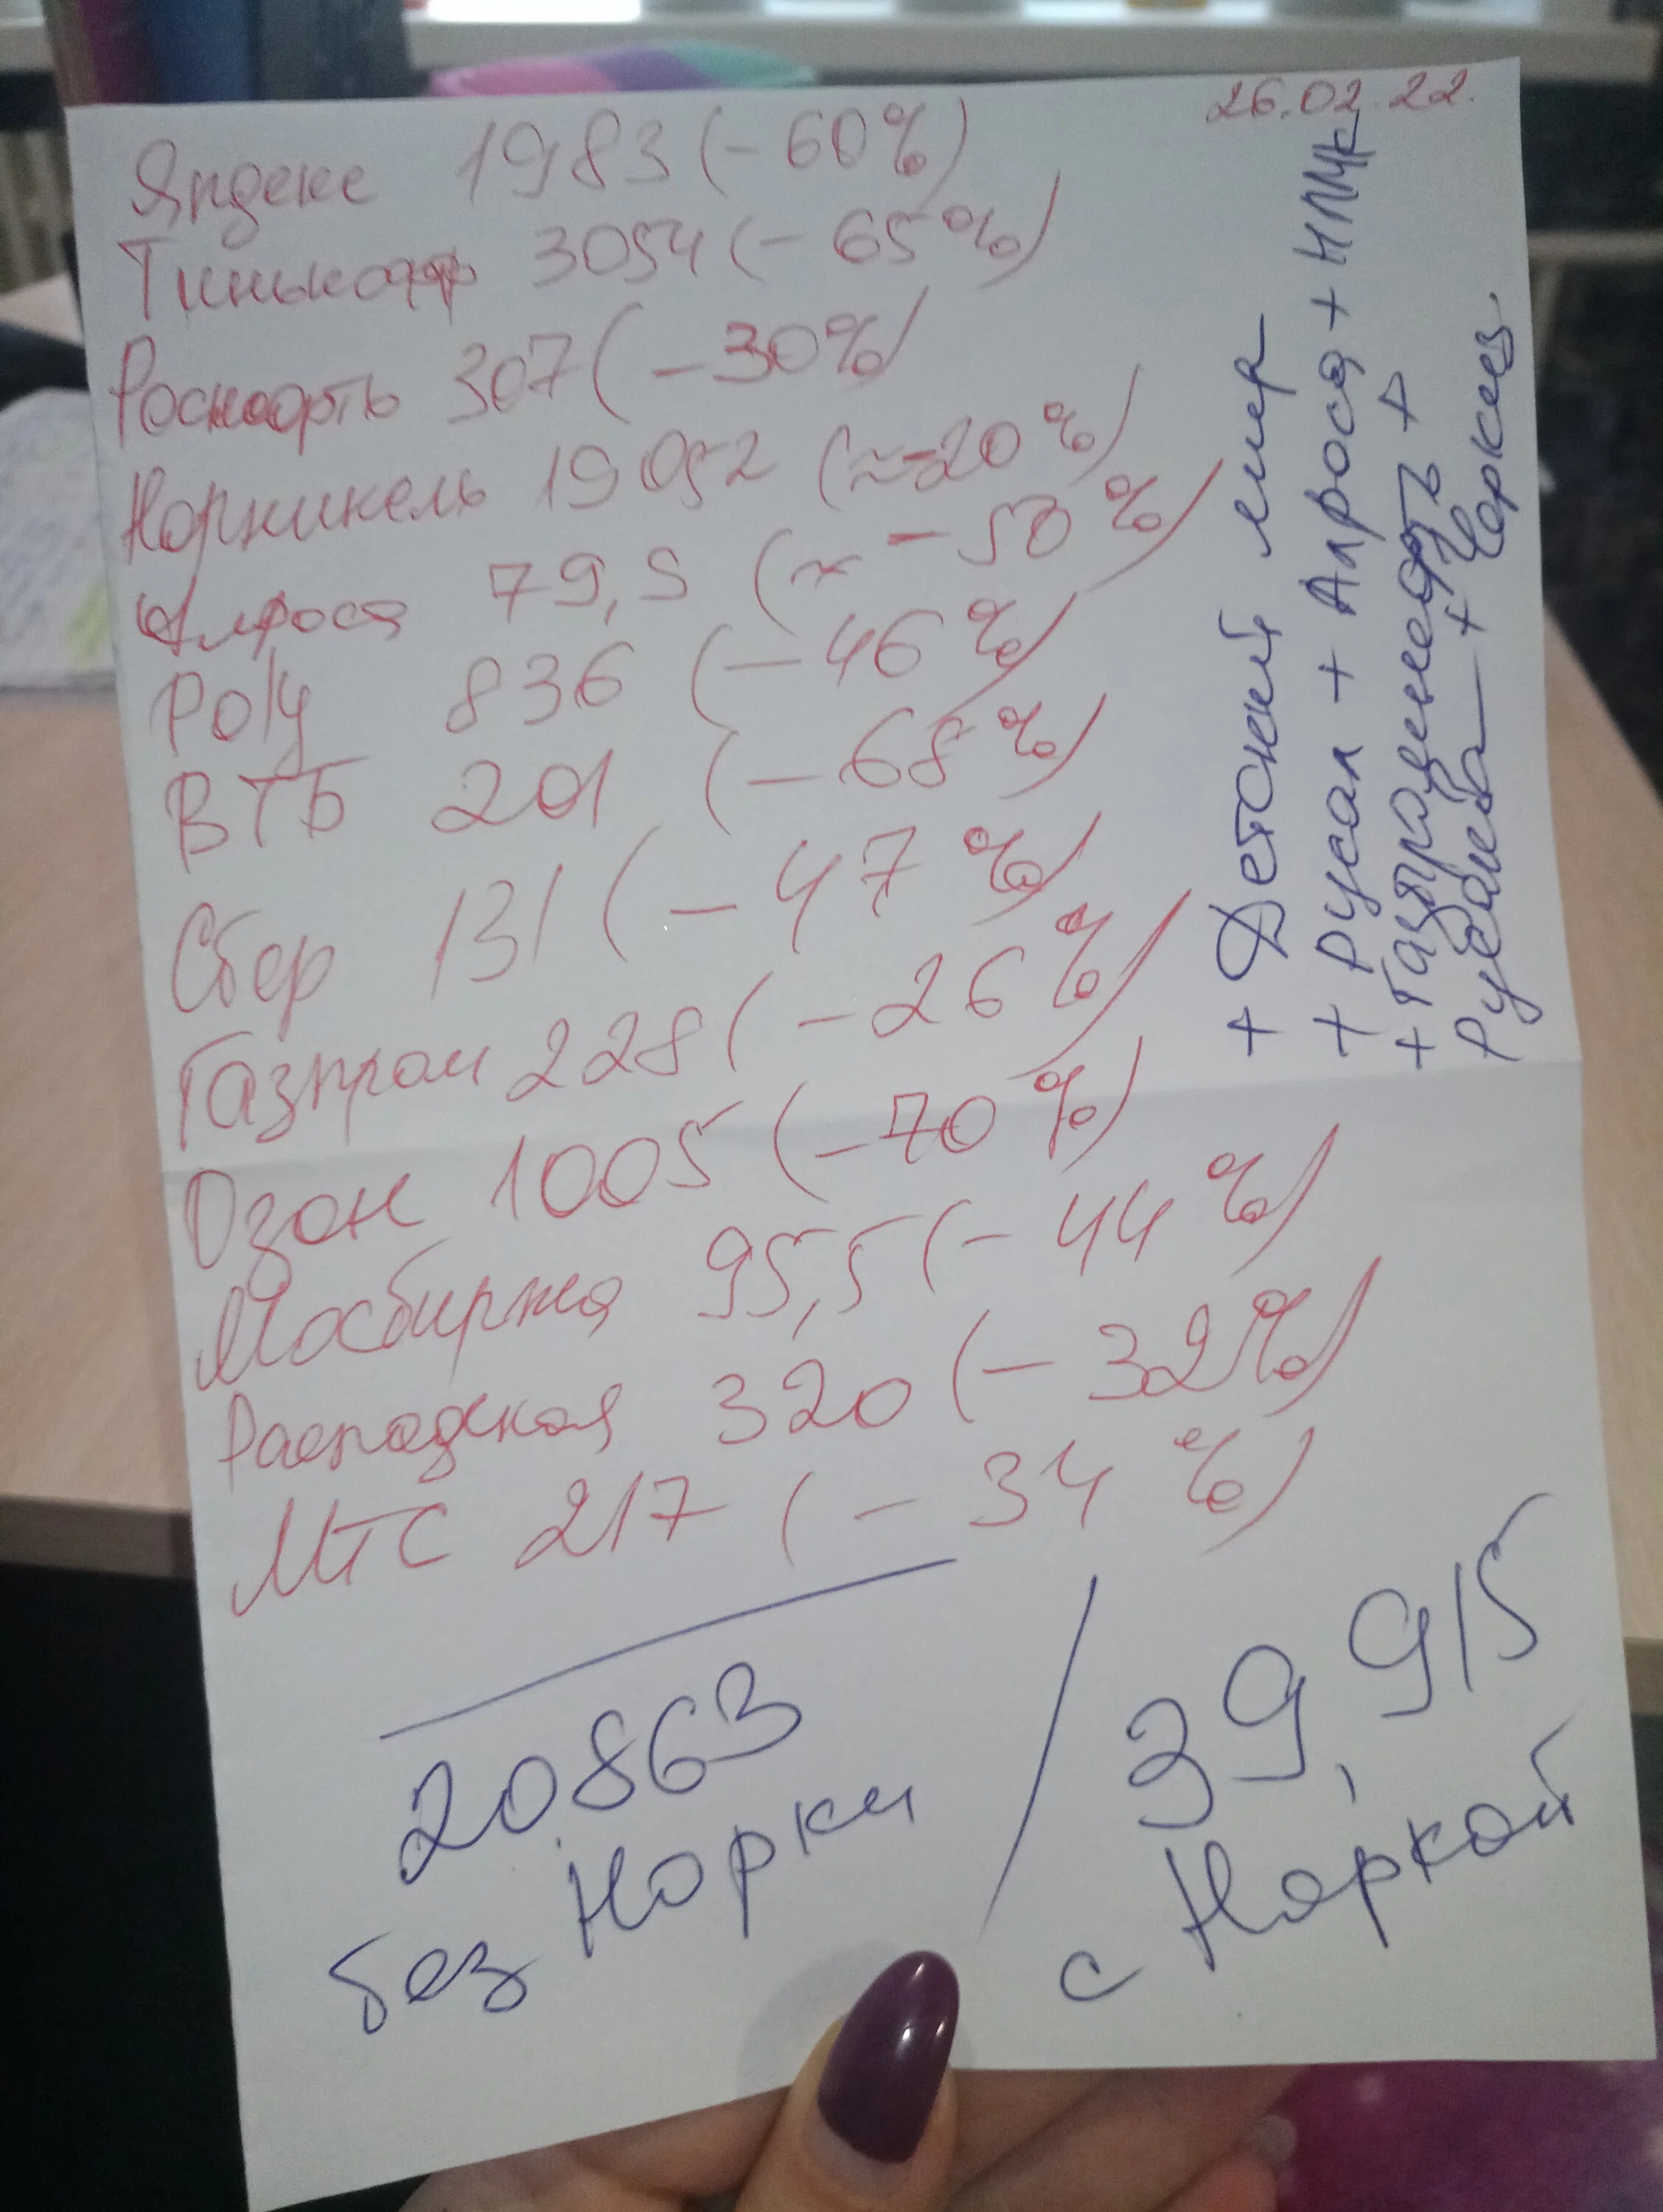 26.02.22.
Яндекс 1983 (-60%)
Тинькофф 3054 (-65%)
Роснефть 307 (-30%)
Норникель 19 052 (≈-20%)
Алроса 79,5 (≈ -50%)
РОЛ 836 (-46%)
ВТБ 201 (-68%)
Сбер 131 (-47%)
Газпром 228 (-26%)
Озон 1005 (-70%)
Мосбиржа 95,5 (-44%)
Распадская 320 (-32%)
МТС 217 (-34%)
20863
без Норки
39,915
с Норкой
+ Детский мир
+ Русал + Алроса + НЛМК
+ Газпромнефть +
+ Черкиз.